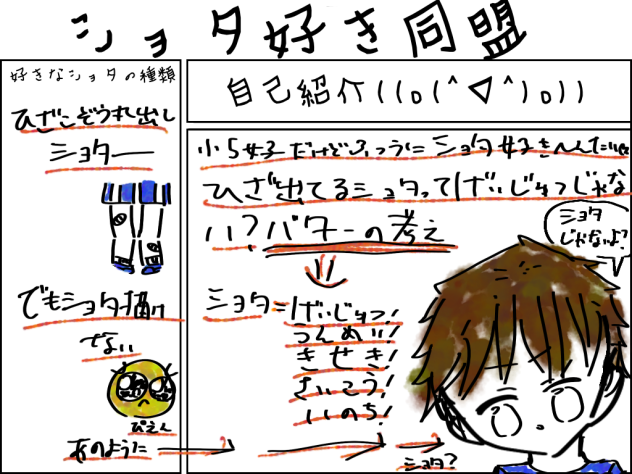 ショタ好き同盟
好きなショタの種類
ひざこぞうれ出し
ショター
でもショタ描け
ぜない
ぴえん
あのように
自己紹介((o(^∇^)o))
小5女子だけどふつうにショタ好きへんたい
ひざ出てるショタってげいじゅつじゃな
い?バターの考え
ショタ=げいじゅつ!
うんめい!
きせき!
さいこう!
いのち!
ショタ
じゃないよ?
ショタ?